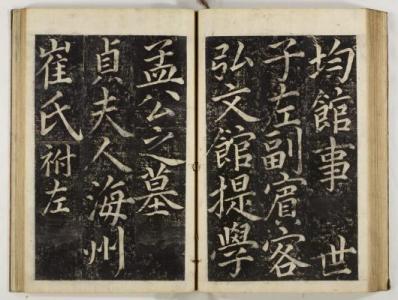 均館事 世
子左副賓客
弘文館提學
孟公之墓
貞夫人海州
崔氏祔左